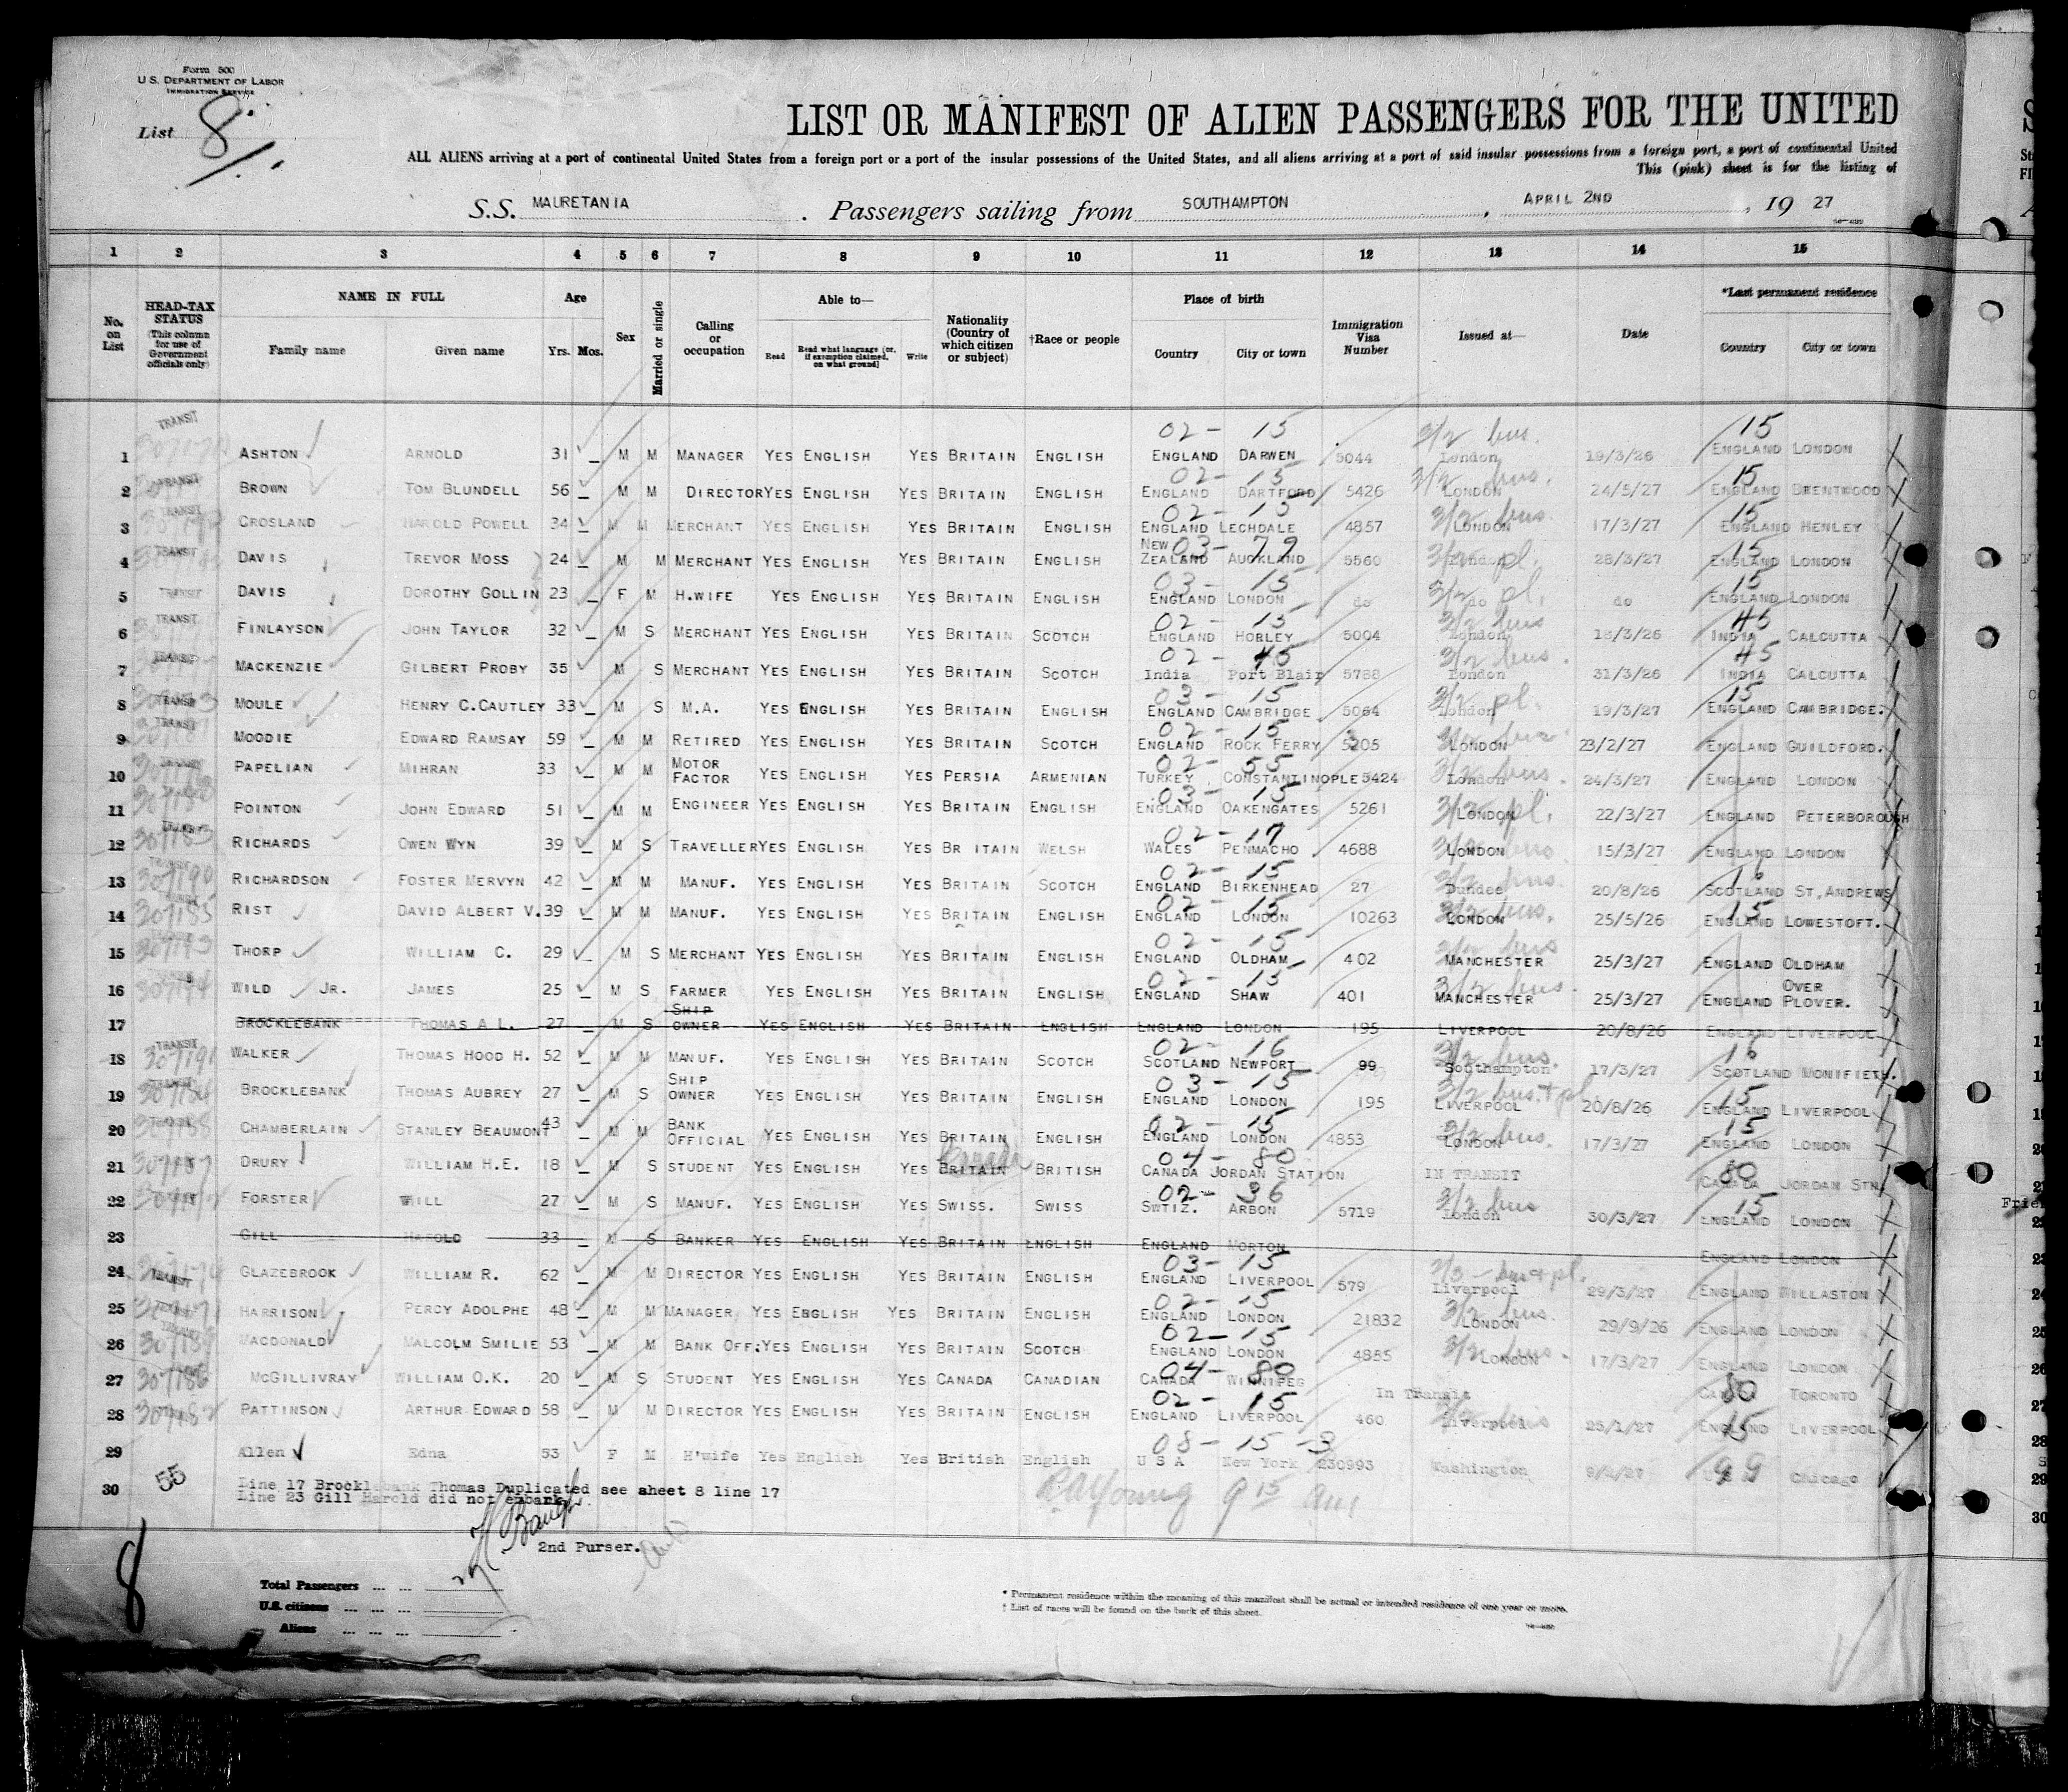 Form 500
U.S. DEPARTMENT OF LABOR
IMMIGRATION SERVICE
List 8
LIST OR MANIFEST OF ALIEN PASSENGERS FOR THE UNITED
ALL ALIENS arriving at a port of continental United States from a foreign port or a port of the insular possessions of the United States, and all aliens arriving at a port of said insular possessions from a foreign port, a port of continental United
This (pink) sheet is for the listing of
S.S. MAURETANIA . Passengers sailing from SOUTHAMPTON , APRIL 2ND , 19 27
1 2 3 4 5 6 7 8 9 10 11 12 13 14 15
No. on List
HEAD-TAX STATUS (This column for use of Government officials only)
NAME IN FULL Family name Given name
Age Yrs. Mos.
Sex
Married or single
Calling or occupation
Able to— Read Read what language (or, if exemption claimed, on what ground) Write
Nationality (Country of which citizen or subject)
†Race or people
Place of birth Country City or town
Immigration Visa Number
Issued at—
Date
*Last permanent residence Country City or town
TRANSIT 02- 15 3/2 bus. 15
1 ASHTON ARNOLD 31 M M MANAGER YES ENGLISH YES BRITAIN ENGLISH ENGLAND DARWEN 5044 London 19/3/26 ENGLAND LONDON
TRANSIT 02- 15 3/2 bus. 15
2 BROWN TOM BLUNDELL 56 M M DIRECTOR YES ENGLISH YES BRITAIN ENGLISH ENGLAND DARTFORD 5426 LONDON 24/3/27 ENGLAND BRENTWOOD
TRANSIT 02- 15 3/2 bus. 15
3 CROSLAND HAROLD POWELL 34 M M MERCHANT YES ENGLISH YES BRITAIN ENGLISH ENGLAND LECHDALE 4857 LONDON 17/3/27 ENGLAND HENLEY
TRANSIT 03- 79 3/2 pl. 15
4 DAVIS TREVOR MOSS 24 M M MERCHANT YES ENGLISH YES BRITAIN ENGLISH NEW ZEALAND AUCKLAND 5560 London 28/3/27 ENGLAND LONDON
TRANSIT 03- 15 3/2 pl. 15
5 DAVIS DOROTHY GOLLIN 23 F M H.WIFE YES ENGLISH YES BRITAIN ENGLISH ENGLAND LONDON do do do ENGLAND LONDON
TRANSIT 02- 15 3/2 bus 45
6 FINLAYSON JOHN TAYLOR 32 M S MERCHANT YES ENGLISH YES BRITAIN SCOTCH ENGLAND HORLEY 5004 London 18/3/26 INDIA CALCUTTA
TRANSIT 02- 45 3/2 bus. 45
7 MACKENZIE GILBERT PROBY 35 M S MERCHANT YES ENGLISH YES BRITAIN SCOTCH India Port Blair 5788 London 31/3/26 INDIA CALCUTTA
TRANSIT 03- 15 3/2 pl. 15
8 MOULE HENRY C.CAUTLEY 33 M S M.A. YES ENGLISH YES BRITAIN ENGLISH ENGLAND CAMBRIDGE 5064 London 19/3/27 ENGLAND CAMBRIDGE.
TRANSIT 02- 15
9 MOODIE EDWARD RAMSAY 59 M M RETIRED YES ENGLISH YES BRITAIN SCOTCH ENGLAND ROCK FERRY 5205 LONDON 23/2/27 ENGLAND GUILDFORD.
02- 55 3/2 bus.
10 PAPELIAN MIHRAN 33 M M MOTOR FACTOR YES ENGLISH YES PERSIA ARMENIAN TURKEY CONSTANTINOPLE 5424 London 24/3/27 ENGLAND LONDON
03- 15 3/2 pl.
11 POINTON JOHN EDWARD 51 M M ENGINEER YES ENGLISH YES BRITAIN ENGLISH ENGLAND OAKENGATES 5261 LONDON 22/3/27 ENGLAND PETERBOROUGH
307183 02- 17 3/2 bus
12 RICHARDS OWEN WYN 39 M S TRAVELLER YES ENGLISH YES BR ITAIN WELSH WALES PENMACHO 4688 LONDON 15/3/27 ENGLAND LONDON
TRANSIT 307190 02- 15 3/2 bus. 16
13 RICHARDSON FOSTER MERVYN 42 M M MANUF. YES ENGLISH YES BRITAIN SCOTCH ENGLAND BIRKENHEAD 27 Dundee 20/8/26 SCOTLAND ST,ANDREWS
307185 02- 15 3/2 bus. 15
14 RIST DAVID ALBERT V. 39 M M MANUF. YES ENGLISH YES BRITAIN ENGLISH ENGLAND LONDON 10263 LONDON 25/5/26 ENGLAND LOWESTOFT.
02- 15 3/2 bus
15 THORP WILLIAM C. 29 M S MERCHANT YES ENGLISH YES BRITAIN ENGLISH ENGLAND OLDHAM 402 MANCHESTER 25/3/27 ENGLAND OLDHAM
02- 15 3/2 bus.
16 WILD JR. JAMES 25 M S FARMER YES ENGLISH YES BRITAIN ENGLISH ENGLAND SHAW 401 MANCHESTER 25/3/27 ENGLAND OVER PLOVER.
17 BROCKLEBANK THOMAS A L. 27 M S SHIP OWNER YES ENGLISH YES BRITAIN ENGLISH ENGLAND LONDON 195 LIVERPOOL 20/8/26 ENGLAND LIVERPOOL
TRANSIT 307191 02- 16 3/2 bus. 16
18 WALKER THOMAS HOOD H. 52 M M MANUF. YES ENGLISH YES BRITAIN SCOTCH SCOTLAND NEWPORT 99 Southampton 17/3/27 SCOTLAND MONIFIETH.
307184 03- 15 3/2 bus.+pl. 15
19 BROCKLEBANK THOMAS AUBREY 27 M S SHIP OWNER YES ENGLISH YES BRITAIN ENGLISH ENGLAND LONDON 195 LIVERPOOL 20/8/26 ENGLAND LIVERPOOL
02- 15 3/2 bus. 15
20 CHAMBERLAIN STANLEY BEAUMONT 43 M M BANK OFFICIAL YES ENGLISH YES BRITAIN ENGLISH ENGLAND LONDON 4853 LONDON 17/3/27 ENGLAND LONDON
Canada 04- 80 80
21 DRURY WILLIAM H.E. 18 M S STUDENT YES ENGLISH YES BRITAIN BRITISH CANADA JORDAN STATION IN TRANSIT CANADA JORDAN STN.
02- 36 3/2 bus 15
22 FORSTER WILL 27 M S MANUF. YES ENGLISH YES SWISS. SWISS SWTIZ. ARBON 5719 London 30/3/27 ENGLAND LONDON
23 GILL HAROLD 33 M S BANKER YES ENGLISH YES BRITAIN ENGLISH ENGLAND MORTON ENGLAND LONDON
TRANSIT 03- 15 bus+pl.
24 GLAZEBROOK WILLIAM R. 62 M M DIRECTOR YES ENGLISH YES BRITAIN ENGLISH ENGLAND LIVERPOOL 579 Liverpool 29/3/27 ENGLAND WILLASTON
02- 15 3/2 bus.
25 HARRISON PERCY ADOLPHE 48 M M MANAGER YES ENGLISH YES BRITAIN ENGLISH ENGLAND LONDON 21832 LONDON 29/9/26 ENGLAND LONDON
307189 02- 15 3/2 bus.
26 MACDONALD MALCOLM SMILIE 53 M BANK OFF: YES ENGLISH YES BRITAIN SCOTCH ENGLAND LONDON 4855 LONDON 17/3/27 ENGLAND LONDON
04- 80 80
27 MCGILLIVRAY WILLIAM O.K. 20 M S STUDENT YES ENGLISH YES CANADA CANADIAN CANADA WINNIPEG In Transit CANADA TORONTO
02- 15 3/2 bus 15
28 PATTINSON ARTHUR EDWARD 58 M M DIRECTOR YES ENGLISH YES BRITAIN ENGLISH ENGLAND LIVERPOOL 460 Liverpool 25/1/27 ENGLAND LIVERPOOL
08- 15 -3 99
29 Allen Edna 53 F M H'wife Yes English Yes British English U S A New York 230993 Washington Chicago
55
30 Line 17 Brocklebank Thomas Duplicated see sheet 8 line 17
Line 23 Gill Harold did not embark.
R.A. Young 9 15 am
2nd Purser.
8
Total Passengers ... ...
U.S. citizens ... ... ...
Aliens ... ... ...
* Permanent residence within the meaning of this manifest shall be actual or intended residence of one year or more.
† List of races will be found on the back of this sheet.